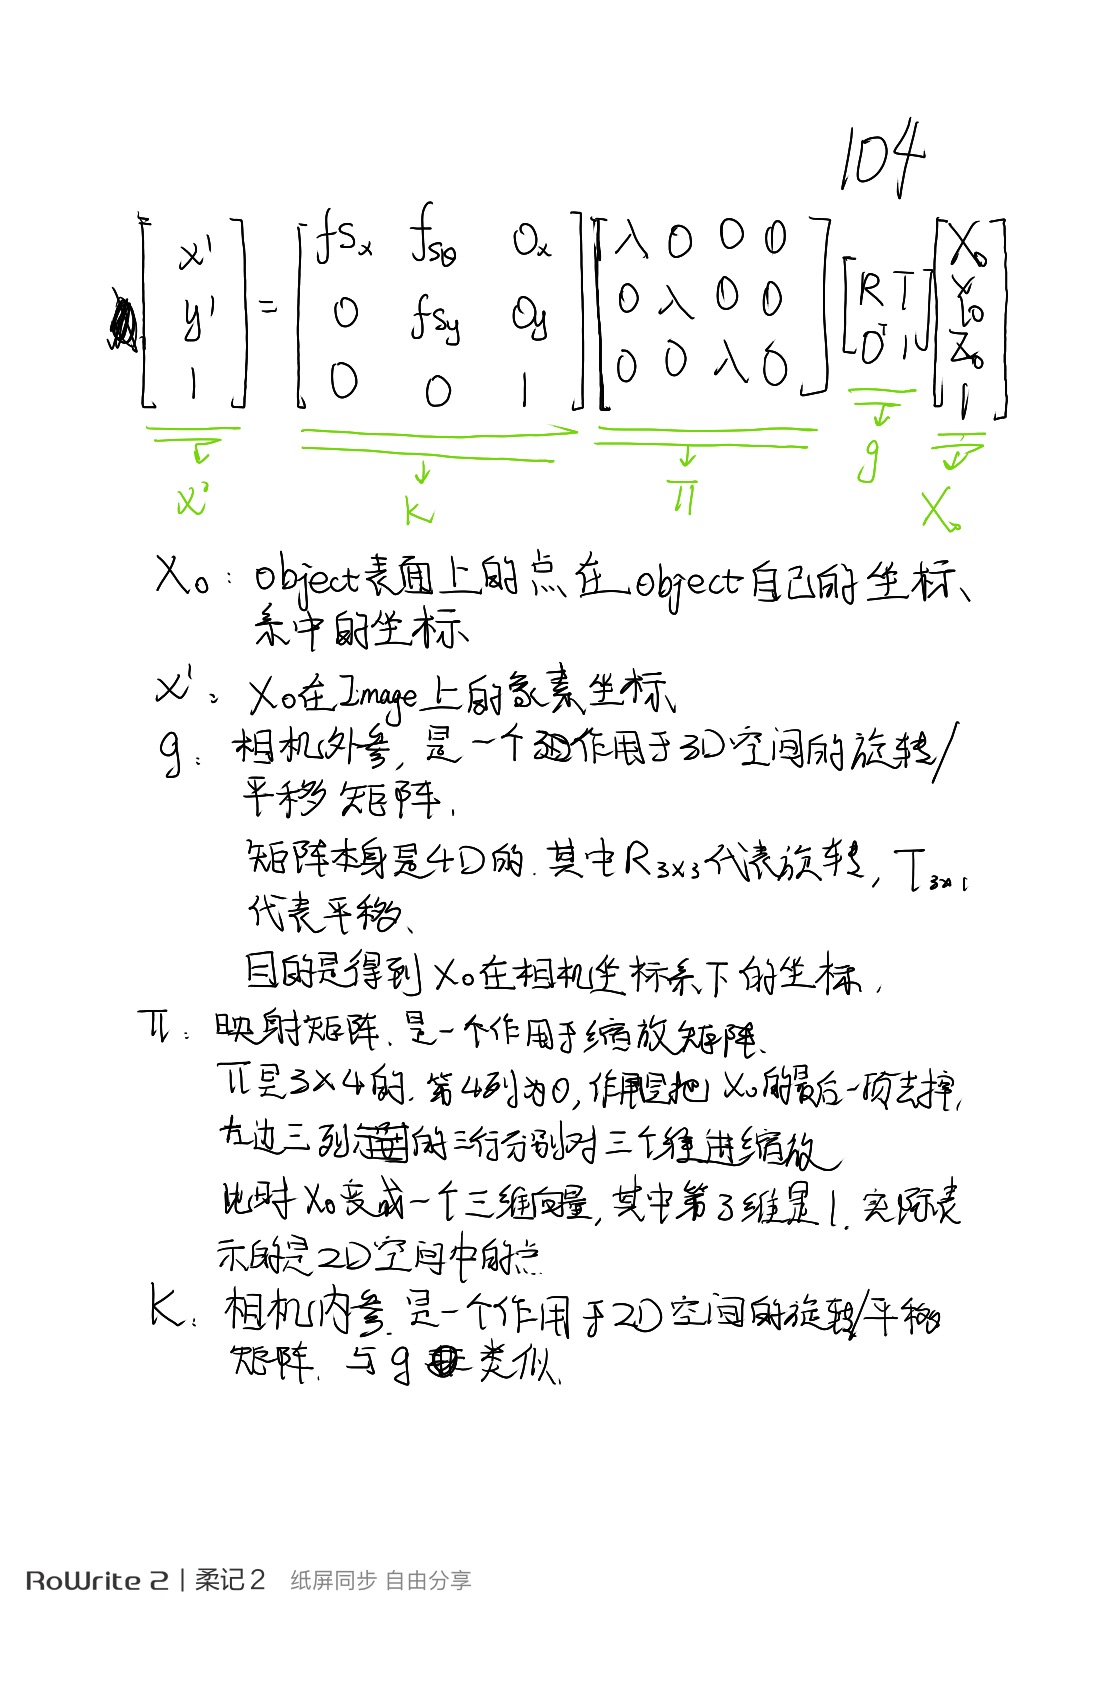 104
[x' y' 1] = [fSx fSθ Ox; 0 fSy Oy; 0 0 1] [λ 0 0 0; 0 λ 0 0; 0 0 λ 0] [R T; 0ᵀ 1] [X₀ Y₀ Z₀ 1]
x' K Π g X₀
X₀: object表面上的点在object自己的坐标
系中的坐标
x': X₀在Image上的象素坐标
g: 相机外参, 是一个作用于3D空间的旋转/
平移矩阵.
矩阵本身是4D的. 其中R3x3代表旋转, T3x1
代表平移.
目的是得到X₀在相机坐标系下的坐标.
Π: 映射矩阵. 是一个作用于缩放矩阵.
Π是3x4的. 第4列为0, 作用是把X₀的最后一项去掉,
左边三列的三行分别对三个维进缩放
此时X₀变成一个三维向量, 其中第3维是1. 实际表
示的是2D空间中的点
K: 相机内参. 是一个作用于2D空间的旋转/平移
矩阵. 与g类似.
RoWrite 2 | 柔记2 纸屏同步 自由分享